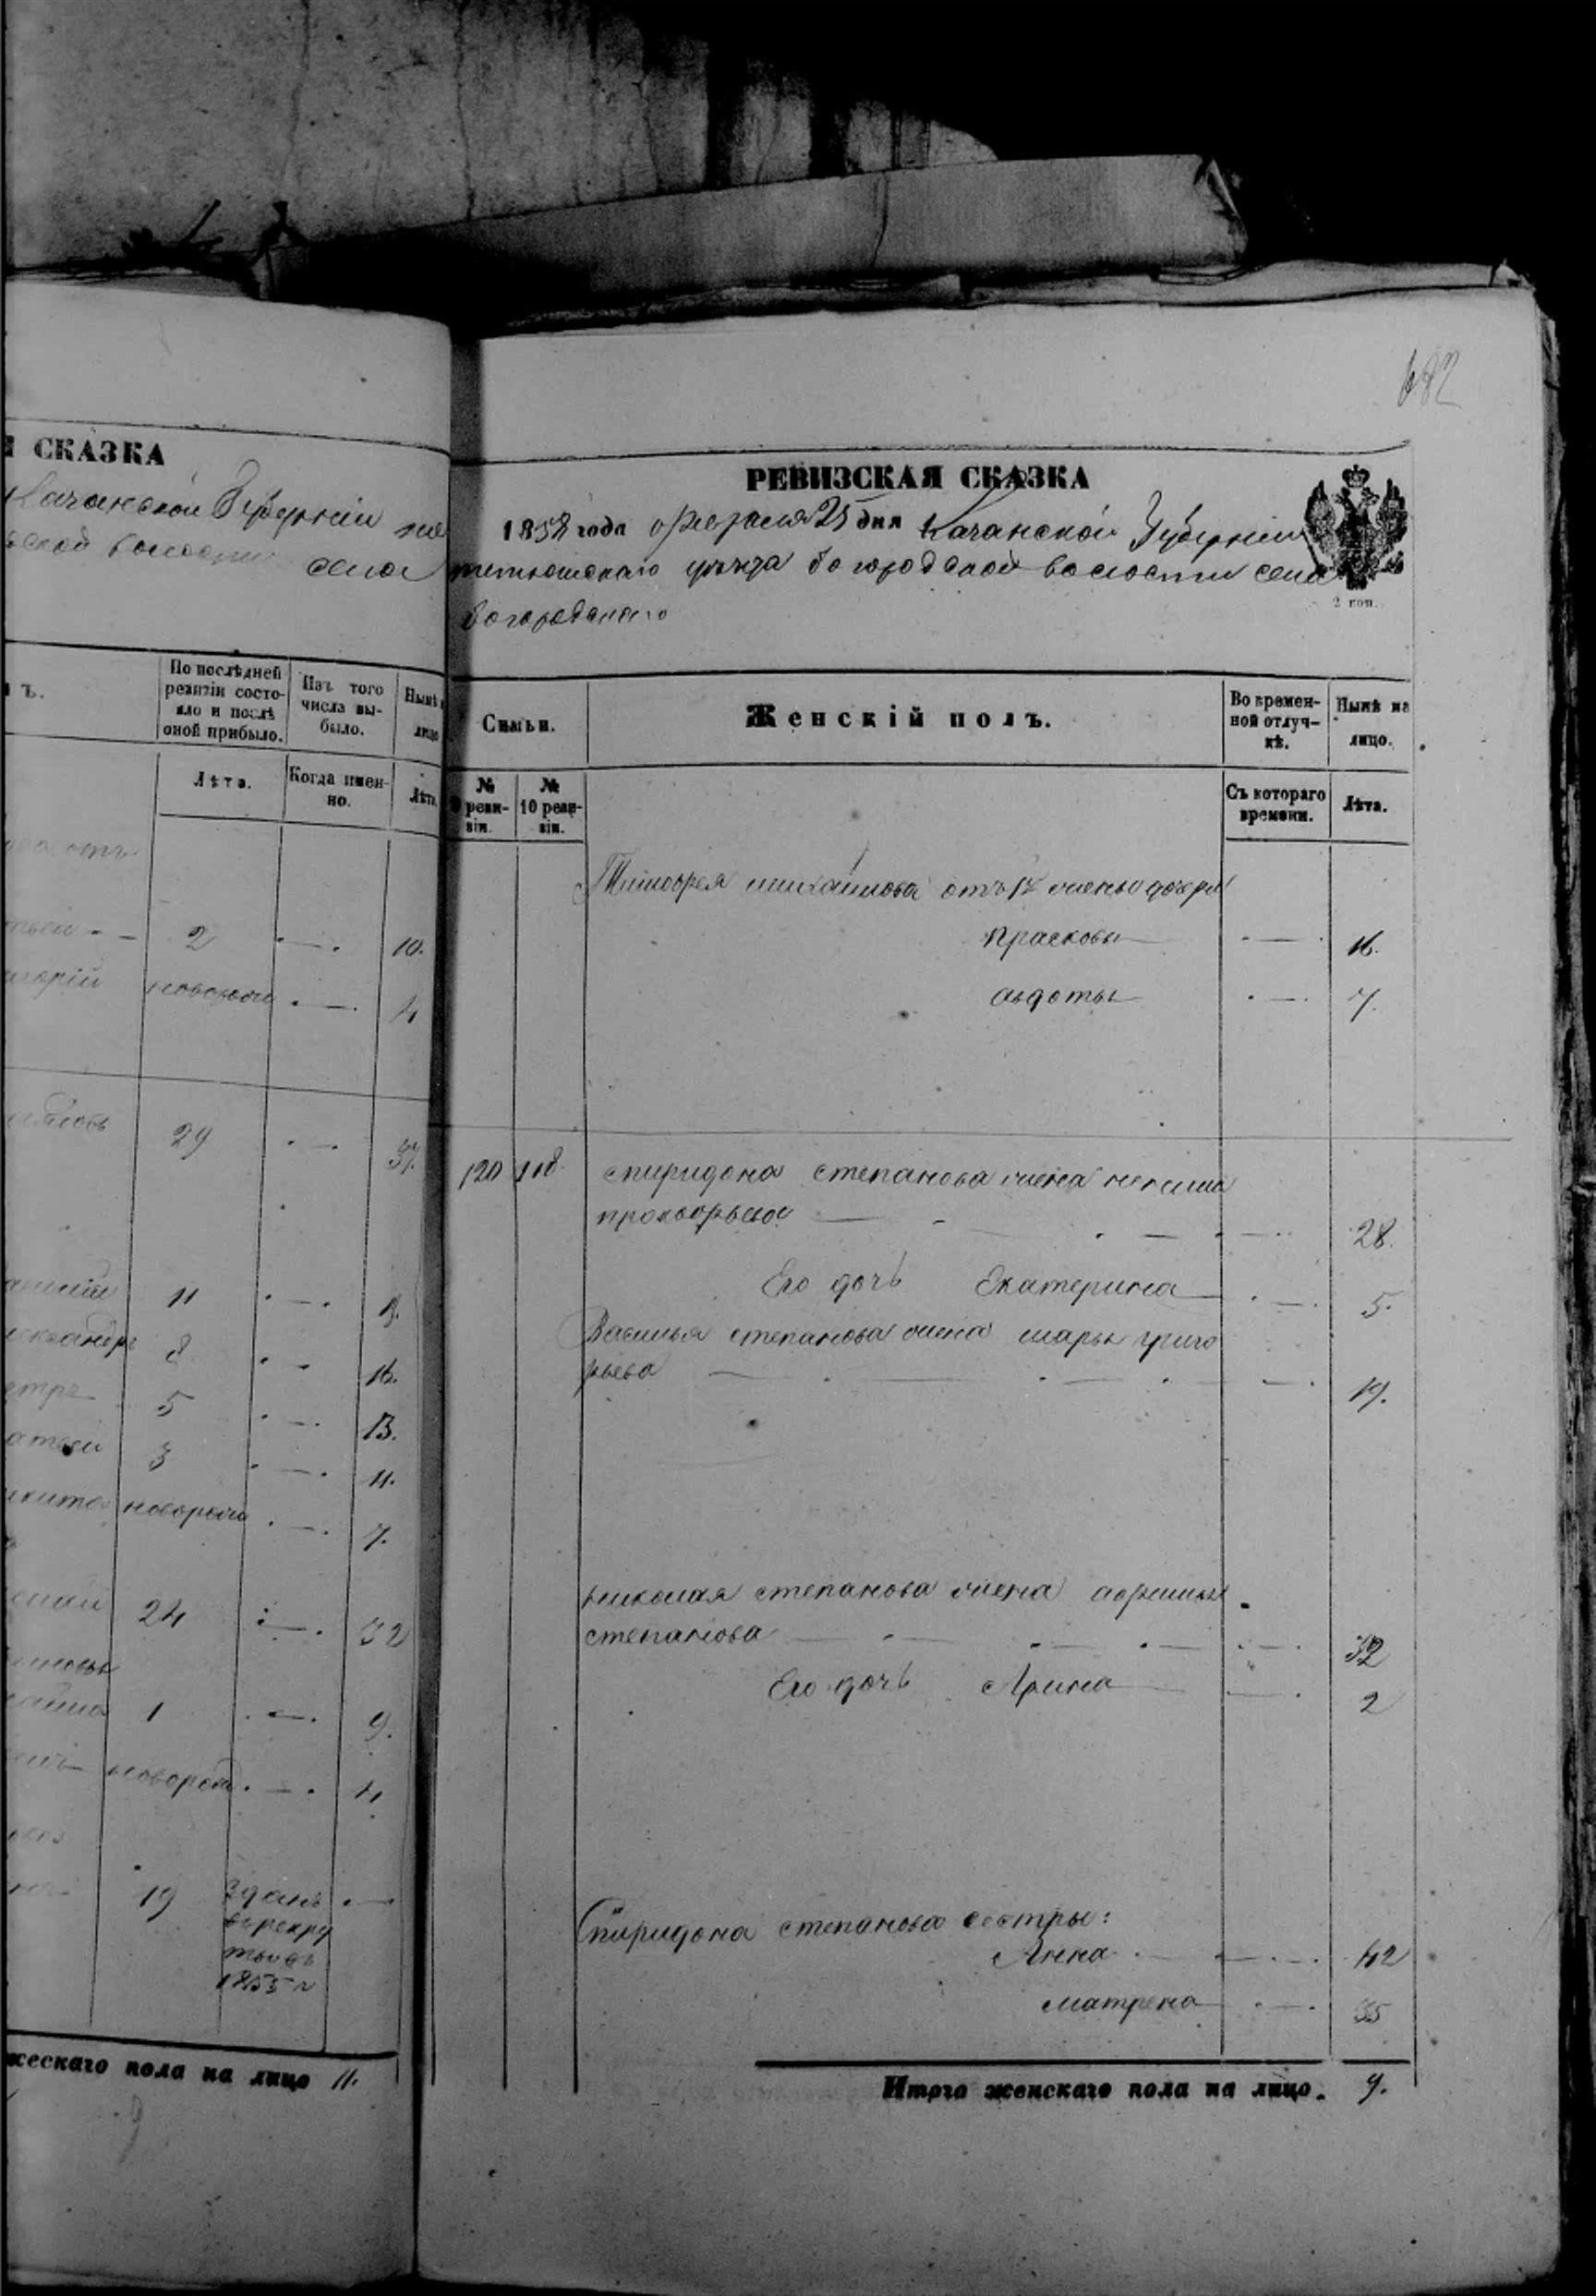 СКАЗКА
Казанской Губерніи
волости села
ъ.
По послѣдней ревизіи состояло и послѣ оной прибыло.
Изъ того числа выбыло.
Нынѣ
лицо
Лѣта.
Когда именно.
Лѣта.
2 10.
новорож 4
29 37.
11 19.
8 16.
5 13.
3 11.
новорож 7.
24 32
1 9.
новорожд 4
19 Зданъ
въ рекру
ты въ
1855 г
жескаго пола на лицо 11.
682
РЕВИЗСКАЯ СКАЗКА
1858 года февраля 25 дня Казанской Губерніи
тетюшскаго уѣзда богородской волости села
богородскаго
2 коп.
Семьи.
Женскій полъ.
Во временной отлучкѣ.
Нынѣ на лицо.
№ ревизіи.
№ 10 ревизіи.
Съ котораго времени.
Лѣта.
Тимофея михайлова отъ 1й жены дочери
Прасковья 16.
авдотья 7.
120 118 спиридона степанова жена
прокофьева 28.
Его дочь Екатерина 5.
Василья степанова жена марья григо
рьева 19.
николая степанова жена афимья
степанова 32
Его дочь Арина 2
Спиридона степанова сестры:
Анна 42
матрена 35
Итого женскаго пола на лицо. 9.